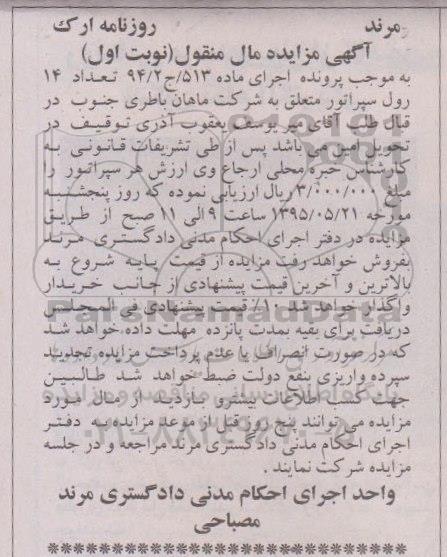 مرند روزنامه ارک
آگهی مزایده مال منقول(نوبت اول)
به موجب پرونده اجرای ماده ۵۱۳/ج۹۴/۲ تعداد ۱۴
رول سپراتور متعلق به شرکت ماهان باطری جنوب در
قبال طلب آقای میر یوسف یعقوب آذری توقیف در
تحویل امین می باشد پس از طی تشریفات قانونی به
کارشناس خبره محلی ارجاع وی ارزش هر سپراتور را
مبلغ ۳/۰۰۰/۰۰۰ ریال ارزیابی نموده که روز پنجشنبه
مورخه ۱۳۹۵/۰۵/۲۱ ساعت ۹ الی ۱۱ صبح از طریق
مزایده در دفتر اجرای احکام مدنی دادگستری مرند
بفروش خواهد رفت مزایده از قیمت پایه شروع به
بالاترین و آخرین قیمت پیشنهادی از جانب خریدار
واگذار خواهد شد ۱۰٪ قیمت پیشنهادی فی المجلس
دریافت برای بقیه بمدت پانزده مهلت داده خواهد شد
که در صورت انصراف یا عدم پرداخت مزایده تجدید
سپرده واریزی بنفع دولت ضبط خواهد شد طالبین
جهت کسب اطلاعات بیشتری بازدید از مال مورد
مزایده می توانند پنج روز قبل از موعد مزایده به دفتر
اجرای احکام مدنی دادگستری مرند مراجعه و در جلسه
مزایده شرکت نمایند .
واحد اجرای احکام مدنی دادگستری مرند
مصباحی
ParsNamadData